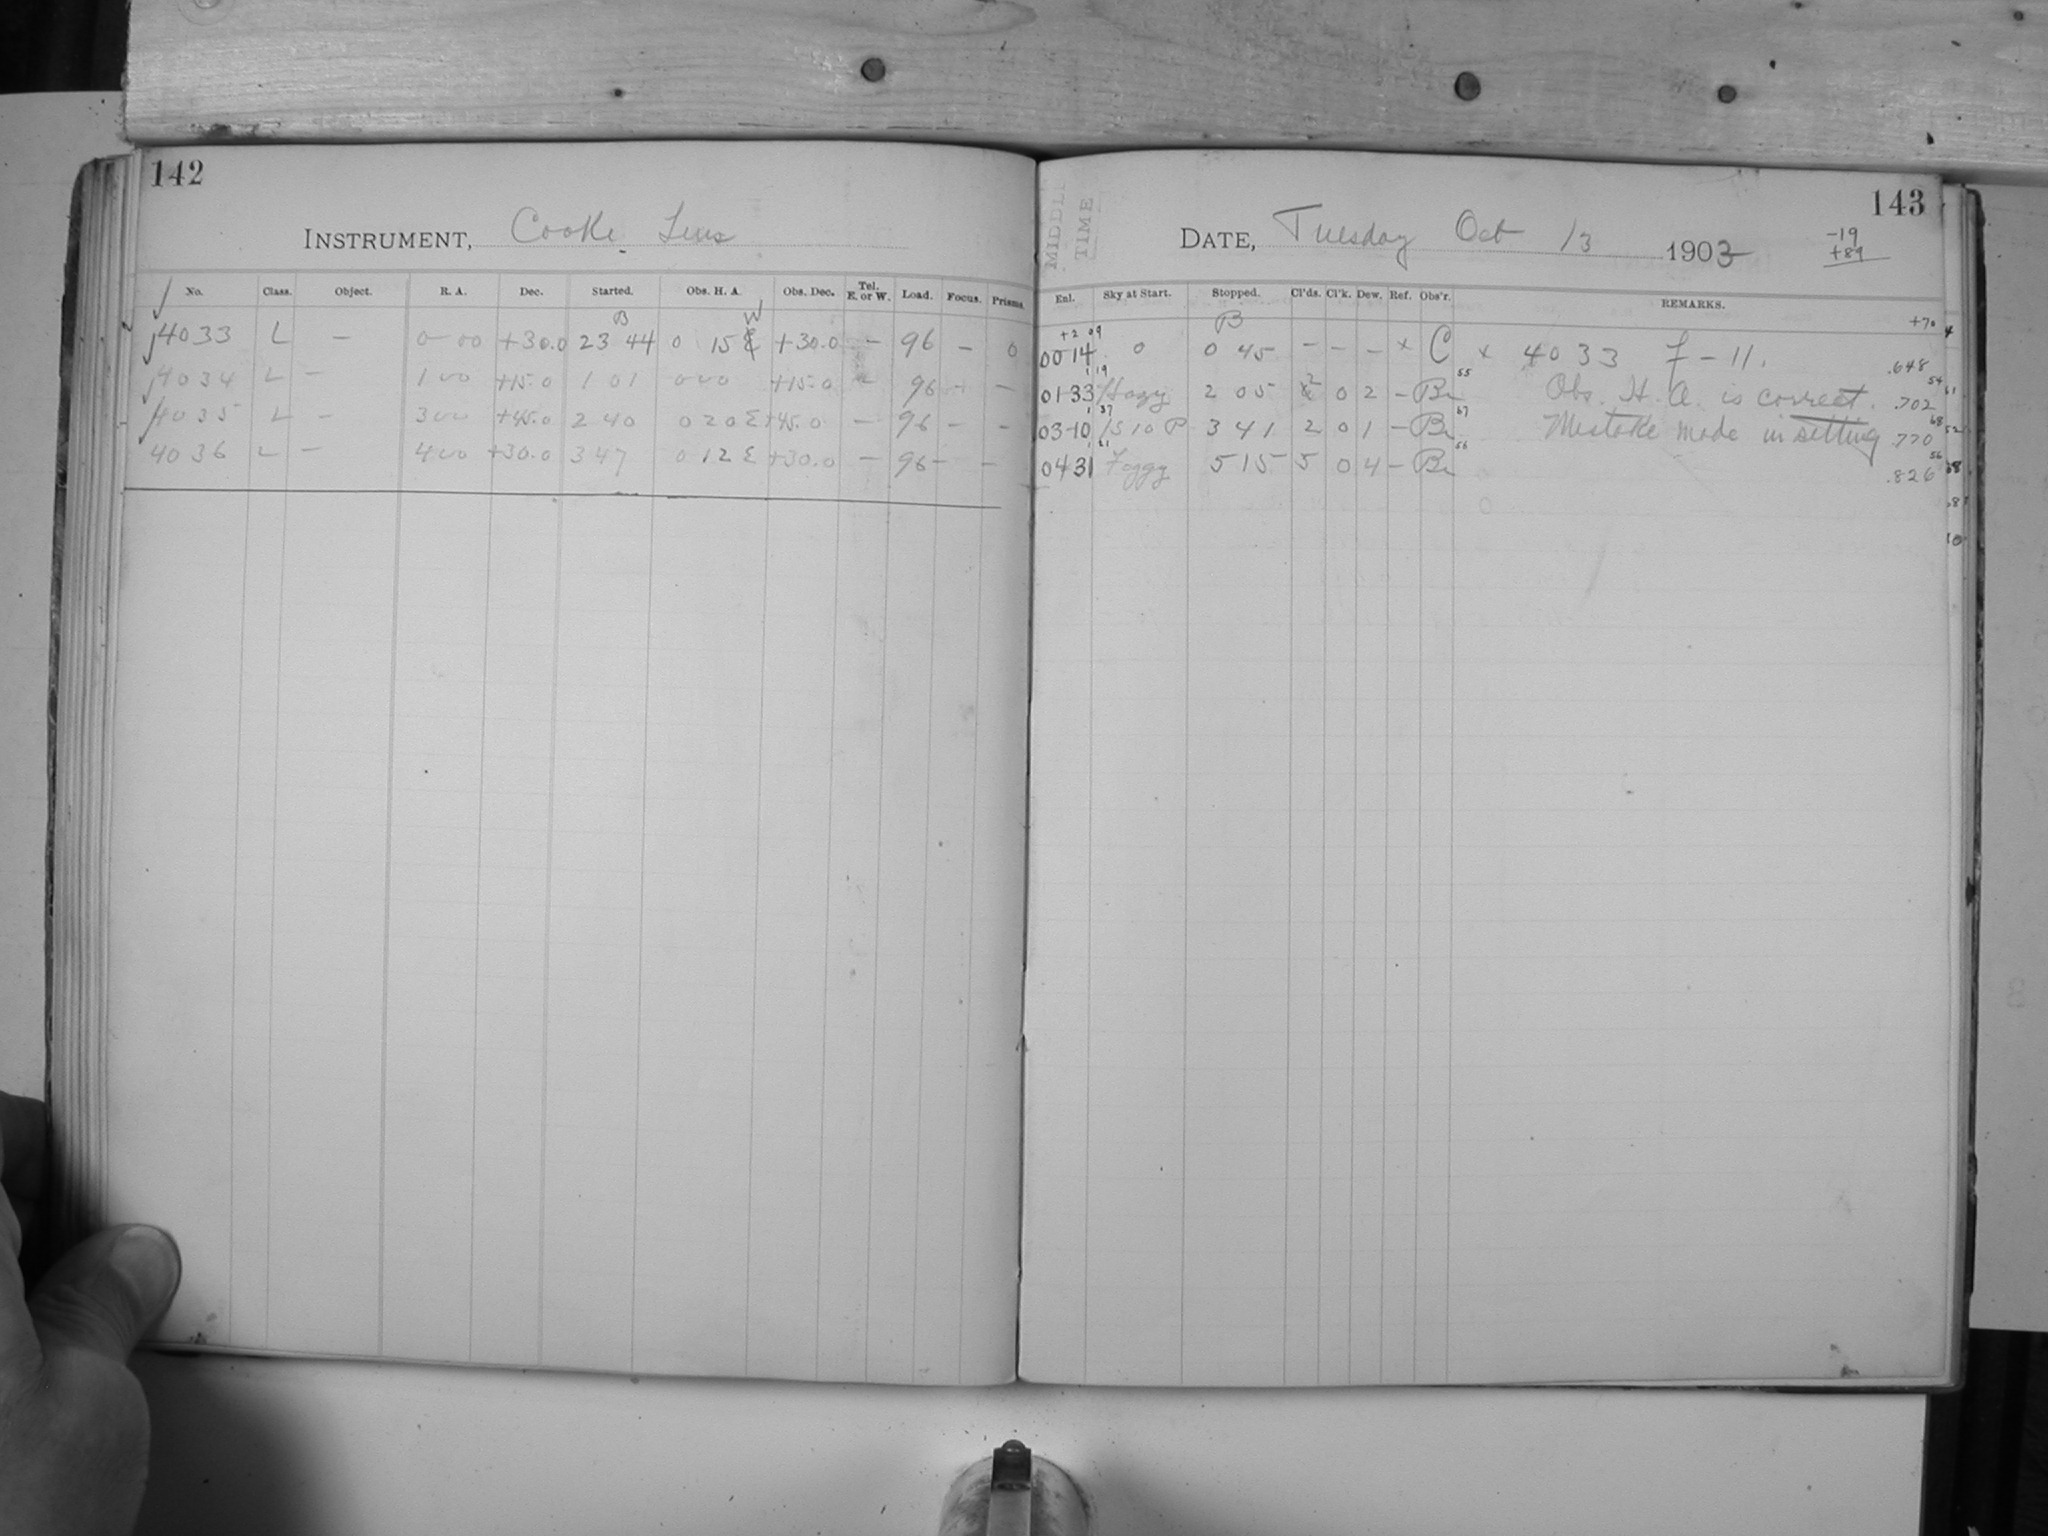 142
INSTRUMENT, Cooke Lens
No. Class. Object. R. A. Dec. Started. Obs. H. A. Obs. Dec. Tel. E. or W. Load. Focus. Prisms
B W
4033 L — 0 00 +30.0 23 44 0 15 +30.0 — 96 — 0
4034 L — 1 00 +15.0 1 01 0 00 +15.0 — 96 — —
4035 L — 3 00 +45.0 2 40 0 20 E +45.0 — 96 — —
4036 L — 4 00 +30.0 3 47 0 12 E +30.0 — 96 — —
143
MIDDL
TIME
DATE, Tuesday Oct 13 1903
-19
+89
Enl. Sky at Start. Stopped. Cl'ds. Cl'k. Dew. Ref. Obs'r. REMARKS.
+70
+2 09 B
00 14 0 0 45 — — — x C x 4033 F - 11. .648
1 19 55 54
01-33 Hazy 2 05 2 0 2 — Br Obs. H. A. is correct. .702
1 37 67 68
03-10 /S 10 P 3 41 2 0 1 — Br Mistake made in setting .770
1 21 56 56
04 31 Foggy 5 15 5 0 4 — Br .826